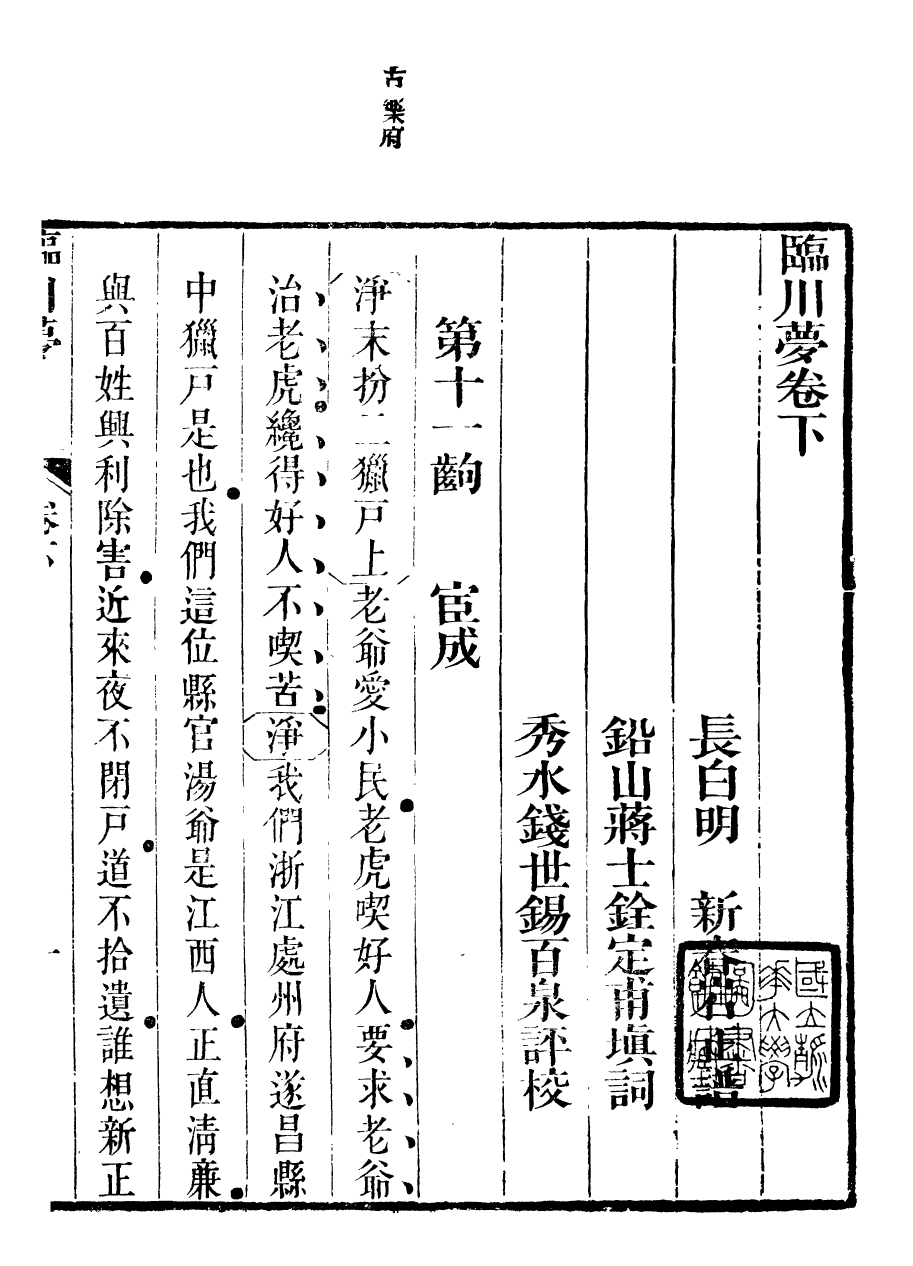 古樂府
臨川夢卷下
長白明　新
鉛山蔣士銓定甫塡詞
秀水錢世錫百泉評校
第十一齣　宦成
淨末扮二獵戸上老爺愛小民老虎喫好人要求老爺
治老虎纔得好人不喫苦淨我們浙江處州府遂昌縣
中獵戸是也我們這位縣官湯爺是江西人正直淸亷
與百姓興利除害近來夜不閉戸道不拾遺誰想新正
臨川夢
卷下
一